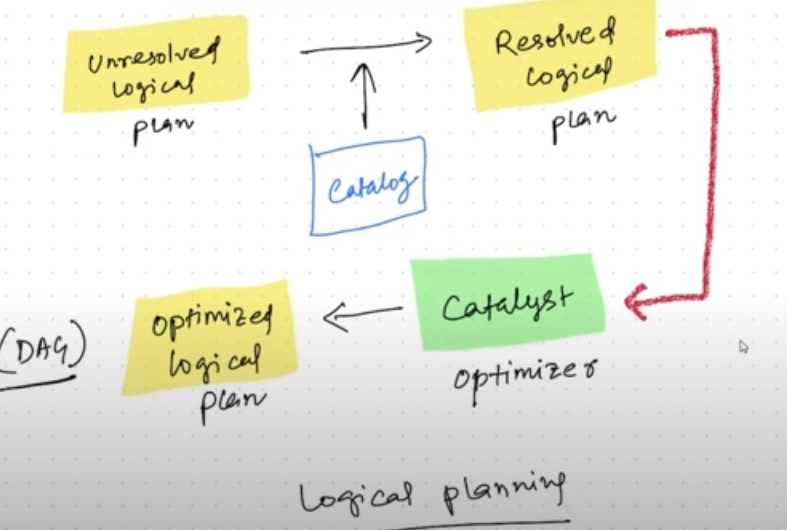 Unresolved
logical
plan
Resolved
logical
plan
Catalog
Catalyst
optimizer
Optimized
logical
plan
(DAG)
Logical planning